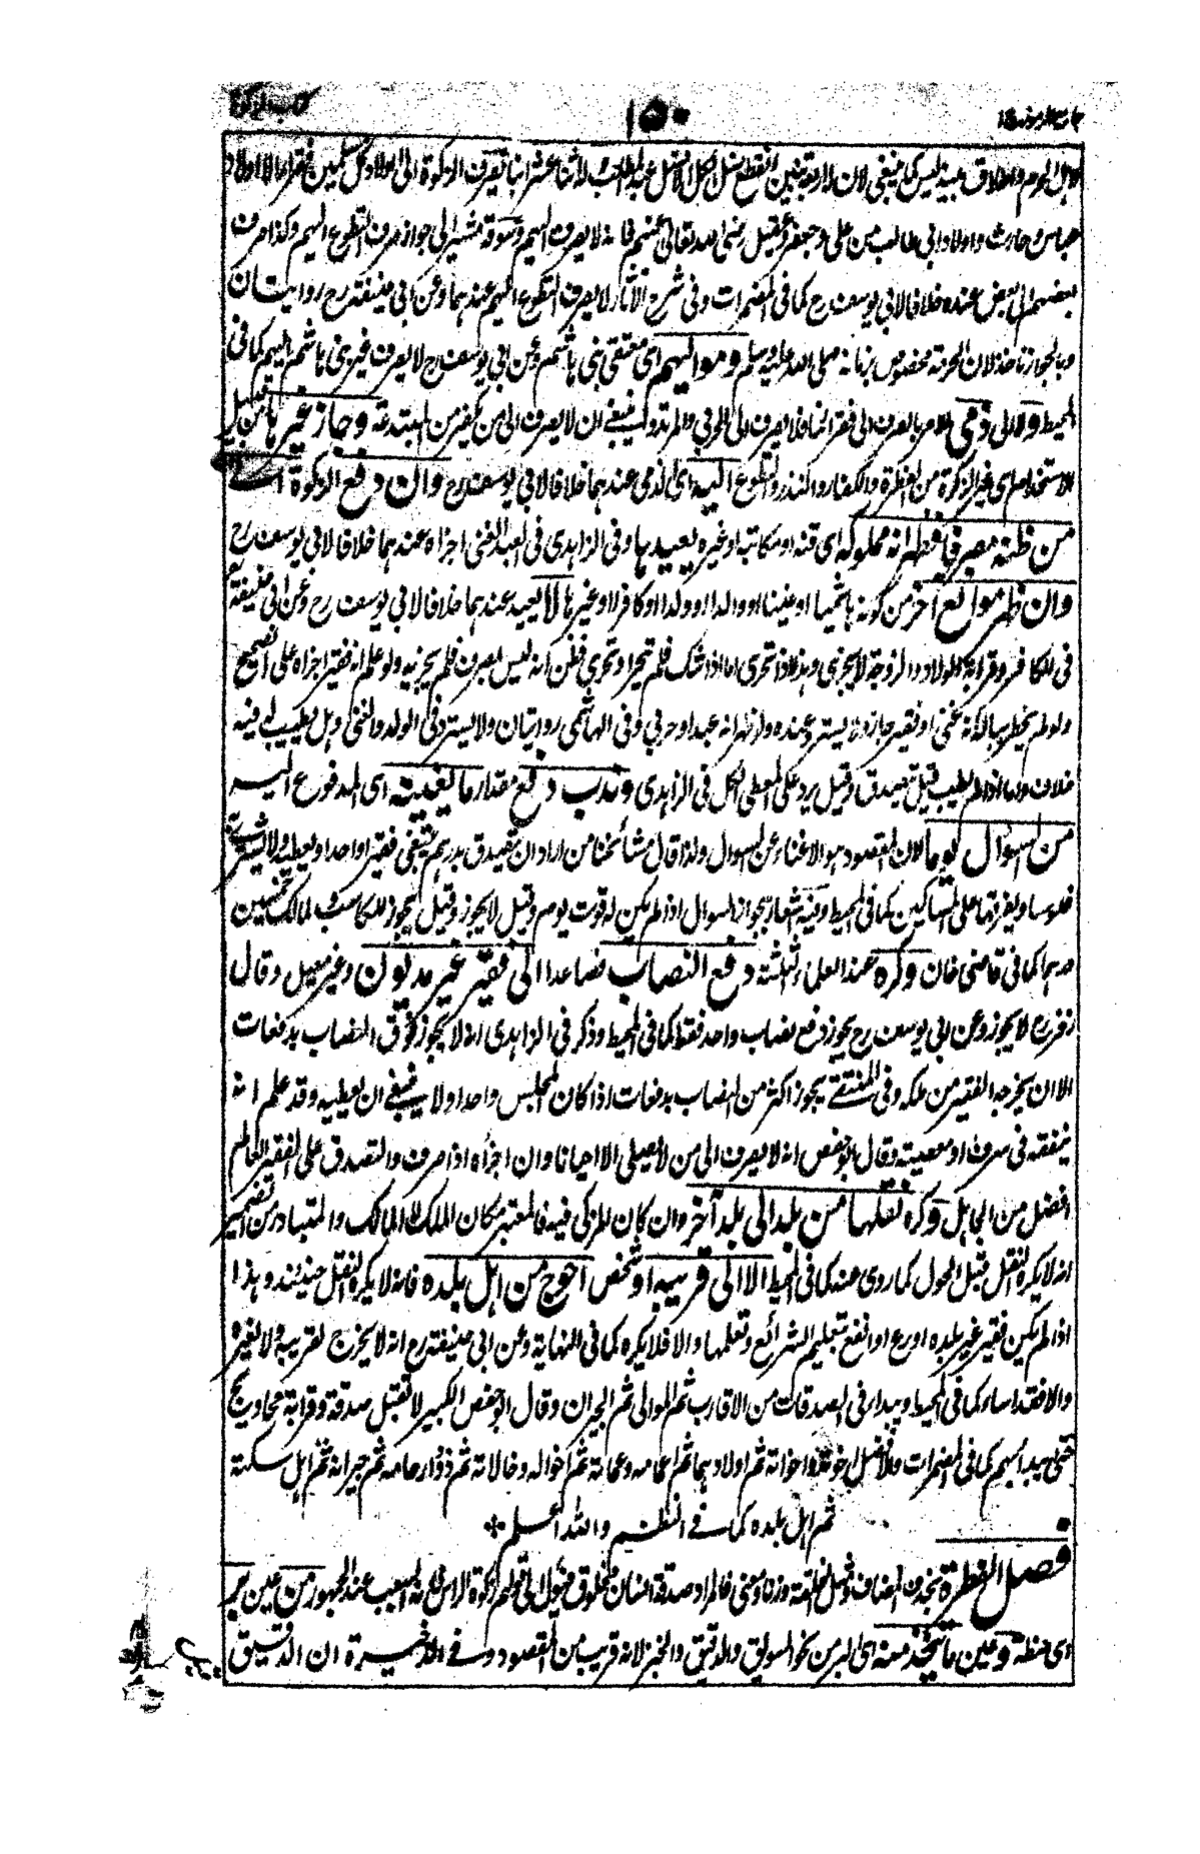 جامع الرموز ١٥٠ كتاب الزكوة
لان
عباس وحارث واولاد ابى طالب من على وجعفر وعقيل رضى الله تعالى عنهم فانه لا يصرف اليهم وسوقه مشير الى جواز صرف التطوع اليهم وكذا صرف
بعضهم الى بعض عنده خلافا لابى يوسف رح كما فى المضمرات وفى شرح الآثار لا يصرف التطوع اليهم عندهما وعن ابى حنيفة رح روايتان
وبالجواز ناخذ لان الحرمة مخصوص بزمانه صلى الله عليه وسلم ومواليهم اى معتقى بنى هاشم وعن ابى يوسف رح لا يصرف غير بنى هاشم اليهم كما فى
المحيط ولا الى ذمى لانه امر بالصرف الى فقرائنا فلا يصرف الى الحربى والمرتد وينبغى ان لا يصرف الى من يكفر من المبتدعة وجاز غيرها من قبيل
الاستخدام اى غير الزكوة من الفطرة والكفارة والنذر والتطوع اليه اى الذمى عندهما خلافا لابى يوسف رح وان دفع الزكوة
من ظنه مصرفا فظهر انه مملوكه اى قنه او مكاتبه او غيره يعيدها وفى الزاهدى فى العبد الغنى اجزاه عندهما خلافا لابى يوسف رح
وان ظهر موانع آخر من كونه هاشميا او غنيا او والدا او ولدا او كافرا او غيرها لا يعيد عندهما خلافا لابى يوسف رح وعن ابى حنيفة
فى الكافر وقرابة الولاد والزوجة لا يجزى وهذا اذا تحرى اما اذا شك فلم يتحر او تحرى فظن انه ليس بمصرف فلم يجزيه ولو علم انه فقير اجزاه على الصحيح
ولو لم يخطر بباله انه غنى او فقير جاز ولا يسترد عنده ولو ظهر انه عبد او حربى وفى الهاشمى روايتان ولا يسترد فى الولد والغنى وهل يطيب له فيه
خلاف واما اذا لم يطيب قيل تصدق وقيل يرد على المعطى الكل فى الزاهدى وندب دفع مقدار ما يغنيه اى المدفوع اليه
من السوال يوما لان المقصود هو الاغناء عن السوال ولذا قال مشائخنا من اراد ان يتصدق بدرهم يبتغى فقيرا واحدا ويعطيه ولا يشترى به
فلوسا ويفرقها على المساكين كما فى المحيط وفيه اشعار بجواز السوال اذا لم يكن له قوت يوم وقيل لا يجوز وقيل يجوز للكاسب لمالك خمسين
درهما كما فى قاضى خان وكره عند العلماء الثلثة دفع النصاب فصاعدا الى فقير غير مديون وغير معيل وقال
زفر رح لا يجوز وعن ابى يوسف رح يجوز دفع نصاب واحد فقط كما فى المحيط وذكر فى الزاهدى انه لا يجوز فوق النصاب بدفعات
الا ان يخرجه الفقير من ملكه وفى المنتقى يجوز اكثر من النصاب بدفعات اذا كان المجلس واحدا ولا ينبغى ان يعطيه وقد علم انه
ينفقه فى سرف او معصية وقال ابو حفص انه لا يصرف الى من لا يصلى الا احيانا وان اجزاه اذا صرف والتصدق على الفقير العالم
افضل من الجاهل وكره نقلها من بلد الى بلد آخر وان كان المزكى فيه فالمعتبر مكان الملك لا المالك والمتبادر من الضمير
انه لا يكره النقل قبل الحول كما روى عنه كما فى المحيط الا الى قريبه او شخص احوج من اهل بلده فانه لا يكره النقل حينئذ وهذا
اذا لم يكن فقير غير بلده اورع او انفع بتعليم الشرائع وتعلمها والا فلا يكره كما فى النهاية وعن ابى حنيفة رح انه لا يخرج لقريبه ولا لغيره
والا فقد اساء كما فى المحيط ويبدا فى الصدقات من الاقارب ثم الموالى ثم الجيران وقال ابو حفص الكبير لا تقبل صدقة وقرابة محاويج
حتى يبدا بهم كما فى المضمرات والافضل اخوته واخواته ثم اولادهما ثم اعمامه وعماته ثم اخواله وخالاته ثم ذوو ارحامه ثم جيرانه ثم اهل سكنته
ثم اهل بلده كما فى النظم والله اعلم
فصل الفطرة بحذف المضاف من عين بر
اى حنطة وعين ما يتخذ منه اى البر من نحو السويق والدقيق والخبز لانه قريب من المقصود وفى الذخيرة ان الدقيق